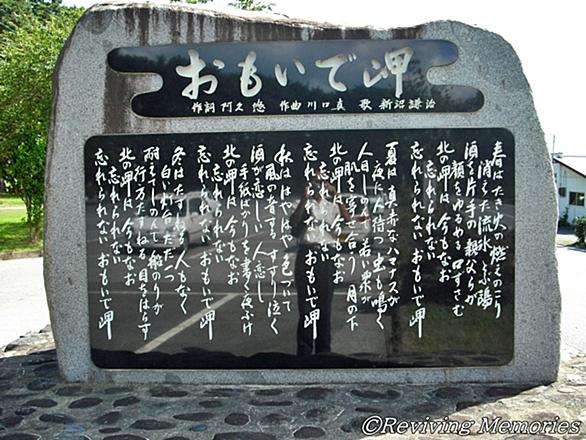 おもいで岬
作詞 阿久 悠 作曲 川口 真 歌 新沼謙治
春はたき火の 燃えのこり
消えた流氷 とぶ鴎
酒を片手の 親父らが
顔をゆるめる 口ずさむ
北の岬は 今もなお
忘れられない
忘れられない おもいで岬
夏は真赤な ハマナスが
夜に人待つ 虫も鳴く
人目しのんで 若い衆が
肌を寄せ合う 月の下
北の岬は 今もなお
忘れられない
忘れられない おもいで岬
秋ははやばや 色づいて
風の音する すすり泣く
酒が恋しい 人恋し
手紙ばかりを 書く夜ふけ
北の岬は 今もなお
忘れられない
忘れられない おもいで岬
冬はたずねる 人もなく
白い灯台 ただ一つ
船のりが
行方たずねる
北の岬は 今もなお
忘れられない
忘れられない おもいで岬
©Reviving Memories